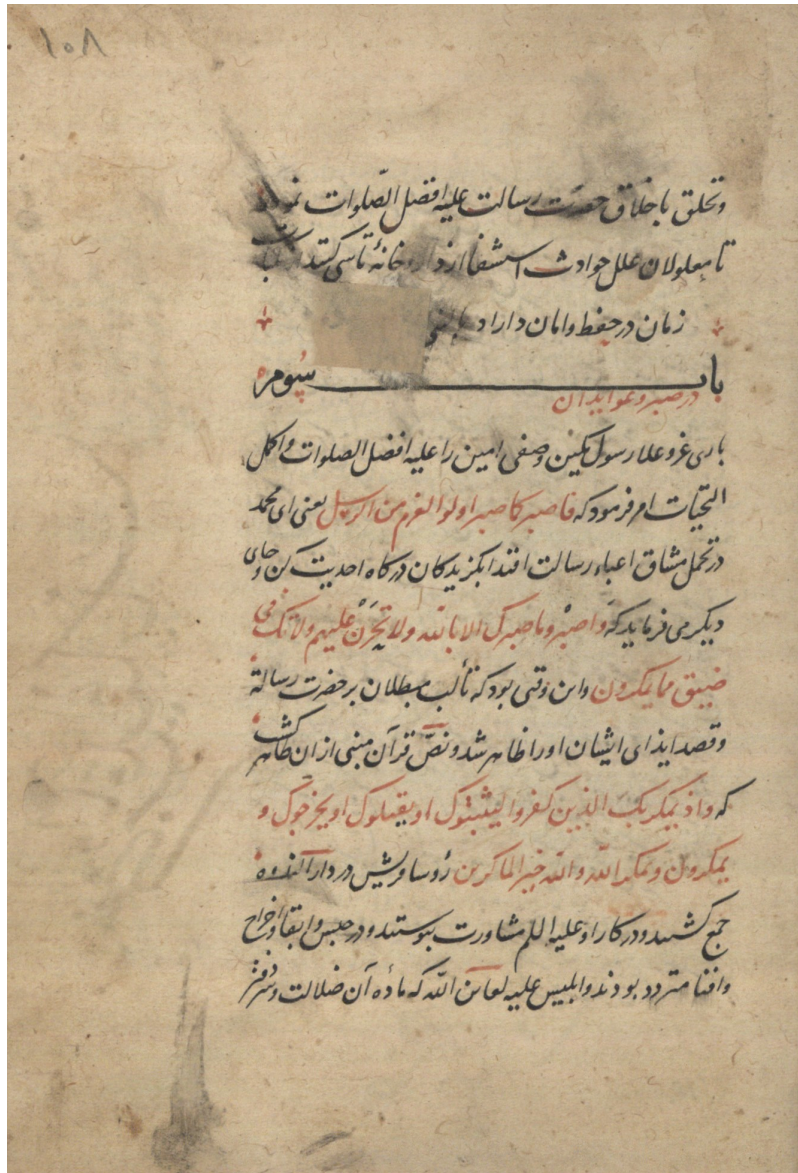 ١٥٨
وتخلق باخلاق حضرت رسالت علیه افضل الصّلوات
تا معلولان علل حوادث استشفا از دارو خانهٔ تاسی کنند
زمان در حفظ و امان داراد
باب سوم
در صبر و عواید آن
باری عز و علا رسول مکین وصفی امین را علیه افضل الصلوات و اکمل
التحیات امر فرمود که فاصبر کما صبر اولوا العزم من الرسل یعنی ای محمد
در تحمل مشاق اعباء رسالت اقتدا بکزیدکان درکاه احدیت کن و جای
دیکر می فرماید که واصبر وما صبرک الا بالله ولا تحزن علیهم ولا تک فی
ضیق مما یمکرون واین وقتی بود که تألب مبطلان بر حضرت رسالة
وقصد ایذای ایشان او را ظاهر شد ونصّ قرآن مبنی از ان ظاهر کشت
که واذ یمکر بک الذین کفروا لیثبتوک او یقتلوک او یخرجوک و
یمکرون ویمکر الله والله خیر الماکرین رؤسا قریش در دار الندوه
جمع کشتند و درکار او علیه السلم مشاورت پیوستند و در حبس و ابقا و اخراج
وافنا متردد بودند وابلیس علیه لعاین الله که مادهٔ آن ضلالت و سر دفتر